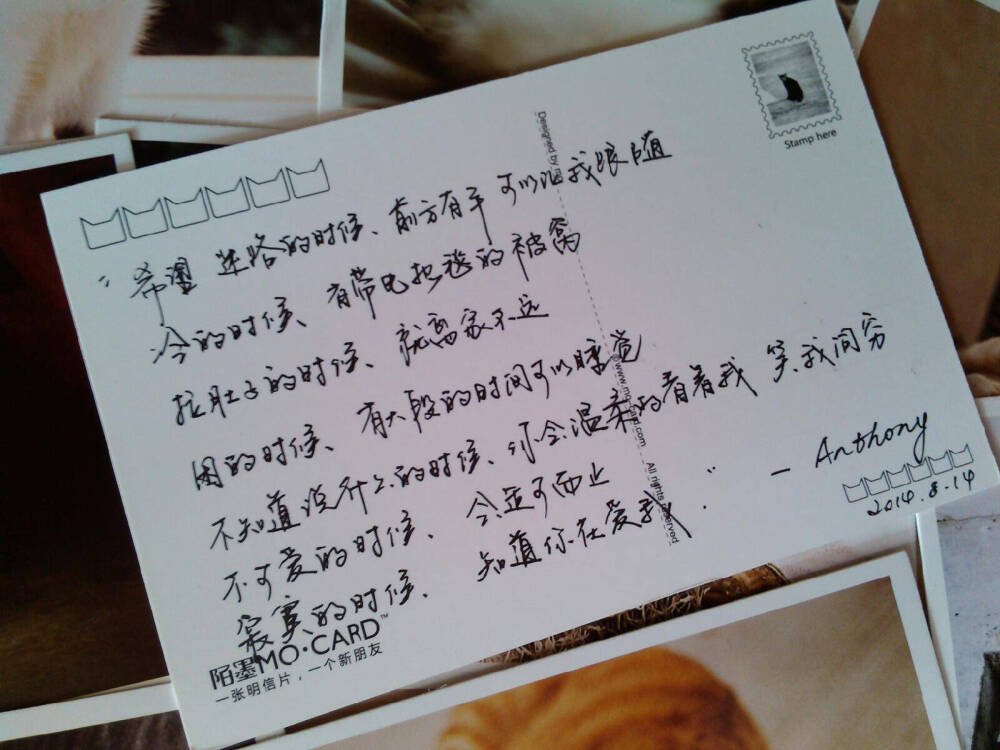 Stamp here
“希望 迷路的时候、前方有车 可以让我跟随
冷的时候、有带电抱毯的被窝
拉肚子的时候、就离家不远
困的时候、有大段的时间可以睡觉
不知道说什么的时候、你会温柔的看着我 笑我词穷
不可爱的时候、会适可而止
寂寞的时候、知道你在爱我.”
— Anthony
2014.8.14
Designed by
www.mo-card.com
All rights reserved
陌墨MO·CARD™
一张明信片，一个新朋友